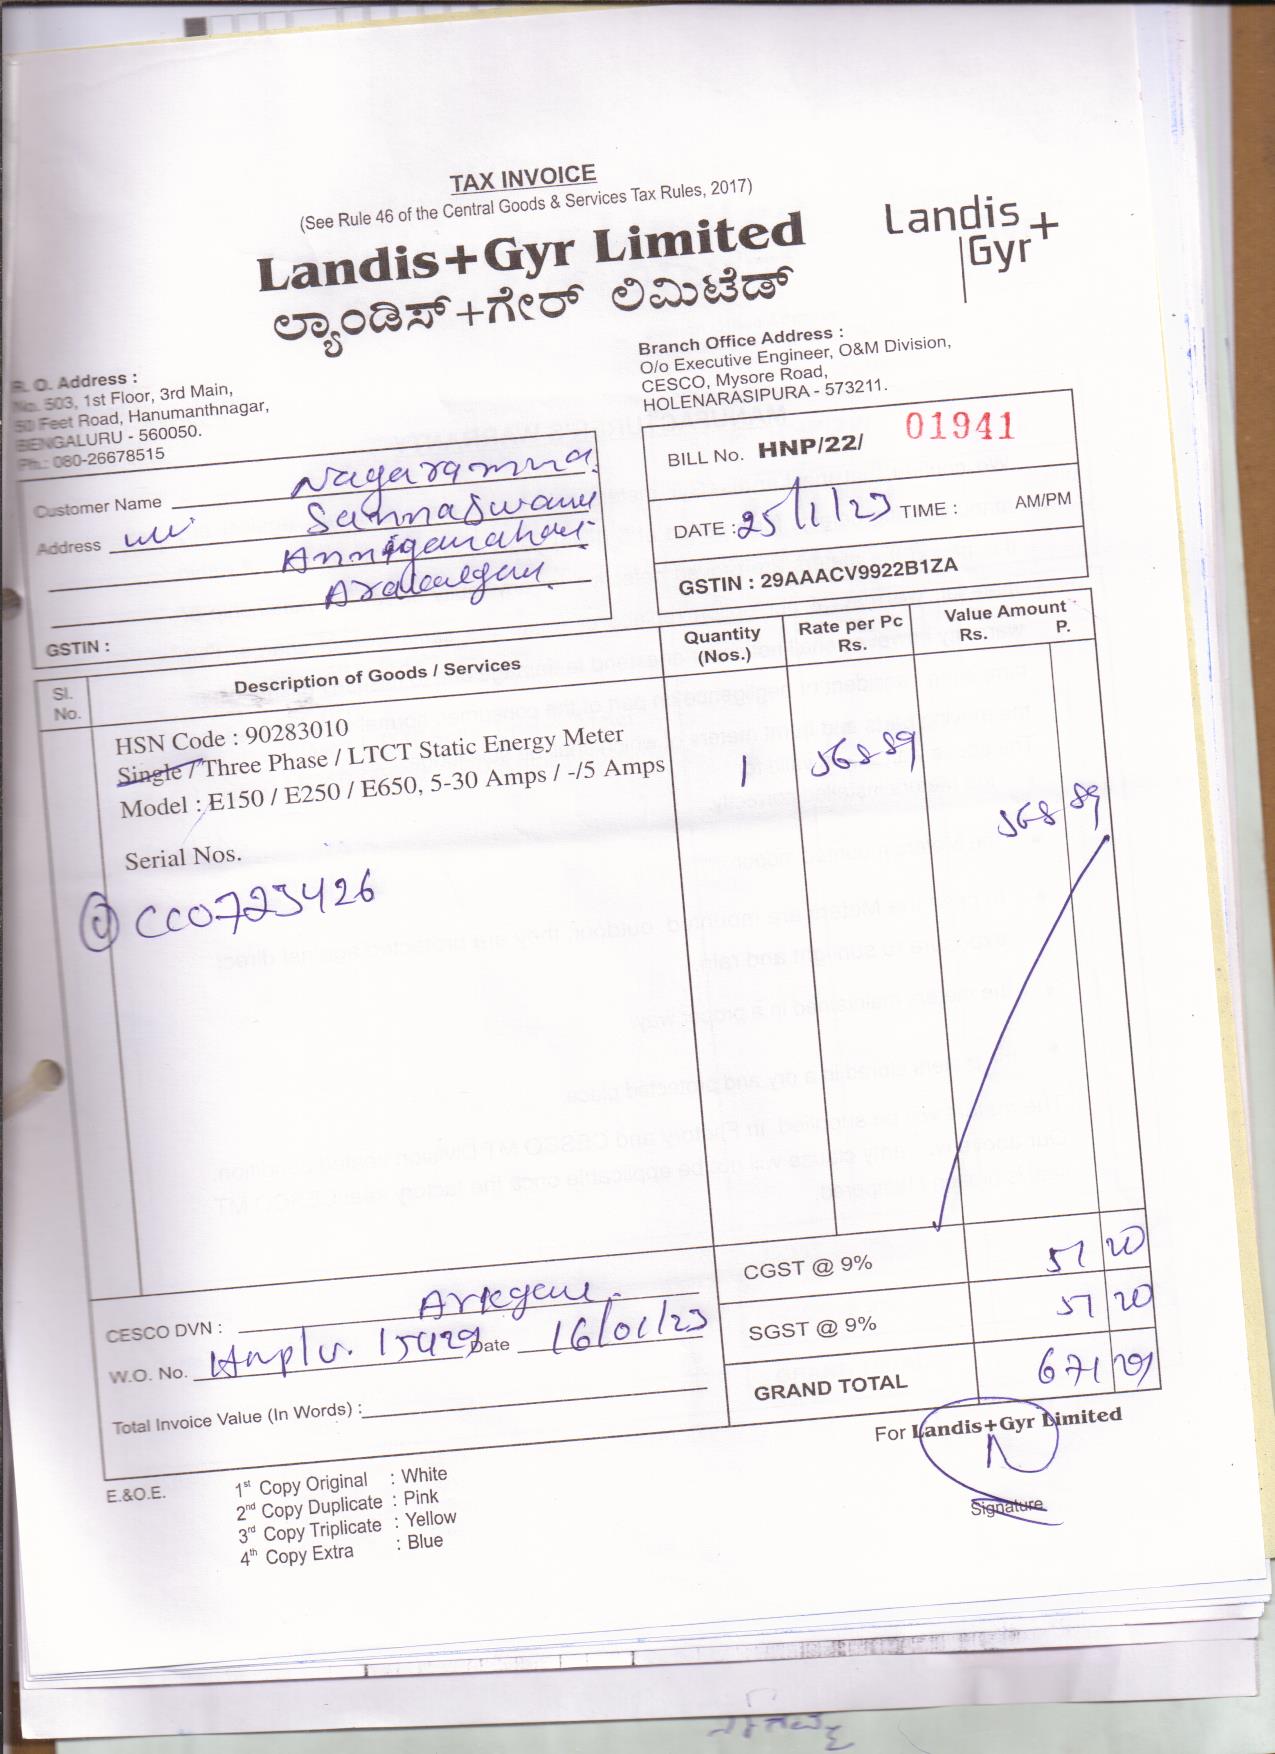 TAX INVOICE
(See Rule 46 of the Central Goods & Services Tax Rules, 2017)
Landis+Gyr Limited
ಲ್ಯಾಂಡಿಸ್+ಗೇರ್ ಲಿಮಿಟೆಡ್
Landis
Gyr+
R. O. Address :
No. 503, 1st Floor, 3rd Main,
50 Feet Road, Hanumanthnagar,
BENGALURU - 560050.
Ph.: 080-26678515
Branch Office Address :
O/o Executive Engineer, O&M Division,
CESCO, Mysore Road,
HOLENARASIPURA - 573211.
Customer Name Nagaramma
Address
GSTIN :
BILL No. HNP/22/ 01941
DATE : 25/1/23 TIME : AM/PM
GSTIN : 29AAACV9922B1ZA
Sl. No. Description of Goods / Services Quantity (Nos.) Rate per Pc Rs. Value Amount Rs. P.
HSN Code : 90283010
Single / Three Phase / LTCT Static Energy Meter 1 568 89
Model : E150 / E250 / E650, 5-30 Amps / -/5 Amps 568 89
Serial Nos.
CC0723426
CGST @ 9% 51 20
SGST @ 9% 51 20
GRAND TOTAL 671 29
CESCO DVN :
W.O. No. 15429 Date 16/01/23
Total Invoice Value (In Words) :
For Landis+Gyr Limited
Signature
E.&O.E.
1st Copy Original : White
2nd Copy Duplicate : Pink
3rd Copy Triplicate : Yellow
4th Copy Extra : Blue